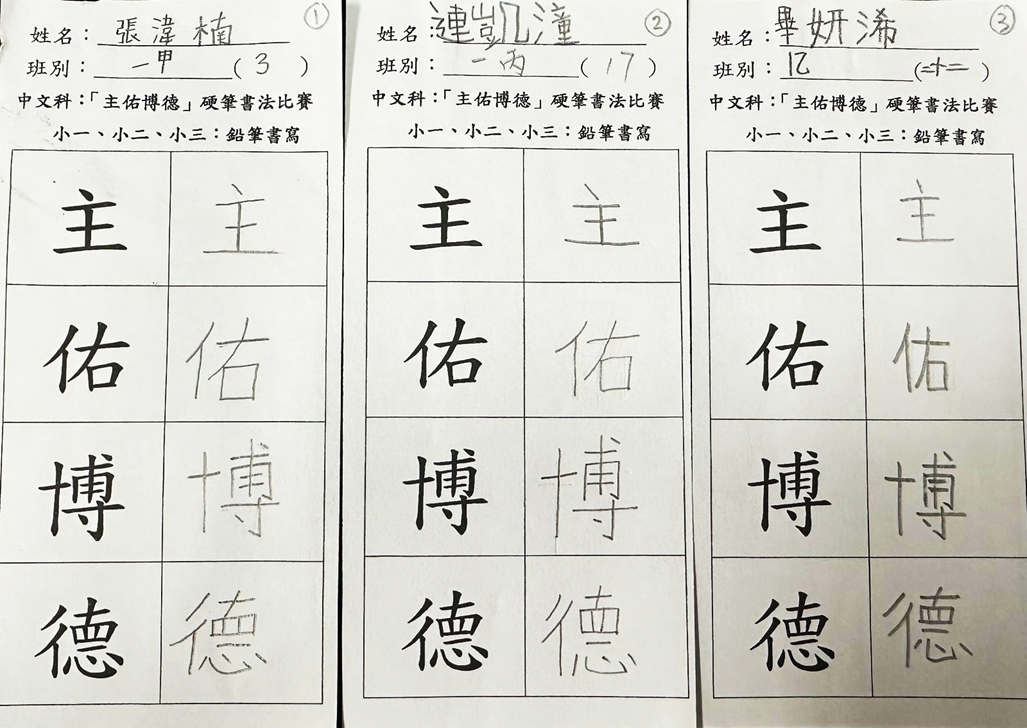 ①
姓名：張湋楠
班別：一甲(3)
中文科：「主佑博德」硬筆書法比賽
小一、小二、小三：鉛筆書寫
主 主
佑 佑
博 博
德 德
②
姓名：連凱潼
班別：一丙(17)
中文科：「主佑博德」硬筆書法比賽
小一、小二、小三：鉛筆書寫
主 主
佑 佑
博 博
德 德
③
姓名：畢妍浠
班別：(二十二)
中文科：「主佑博德」硬筆書法比賽
小一、小二、小三：鉛筆書寫
主 主
佑 佑
博 博
德 德